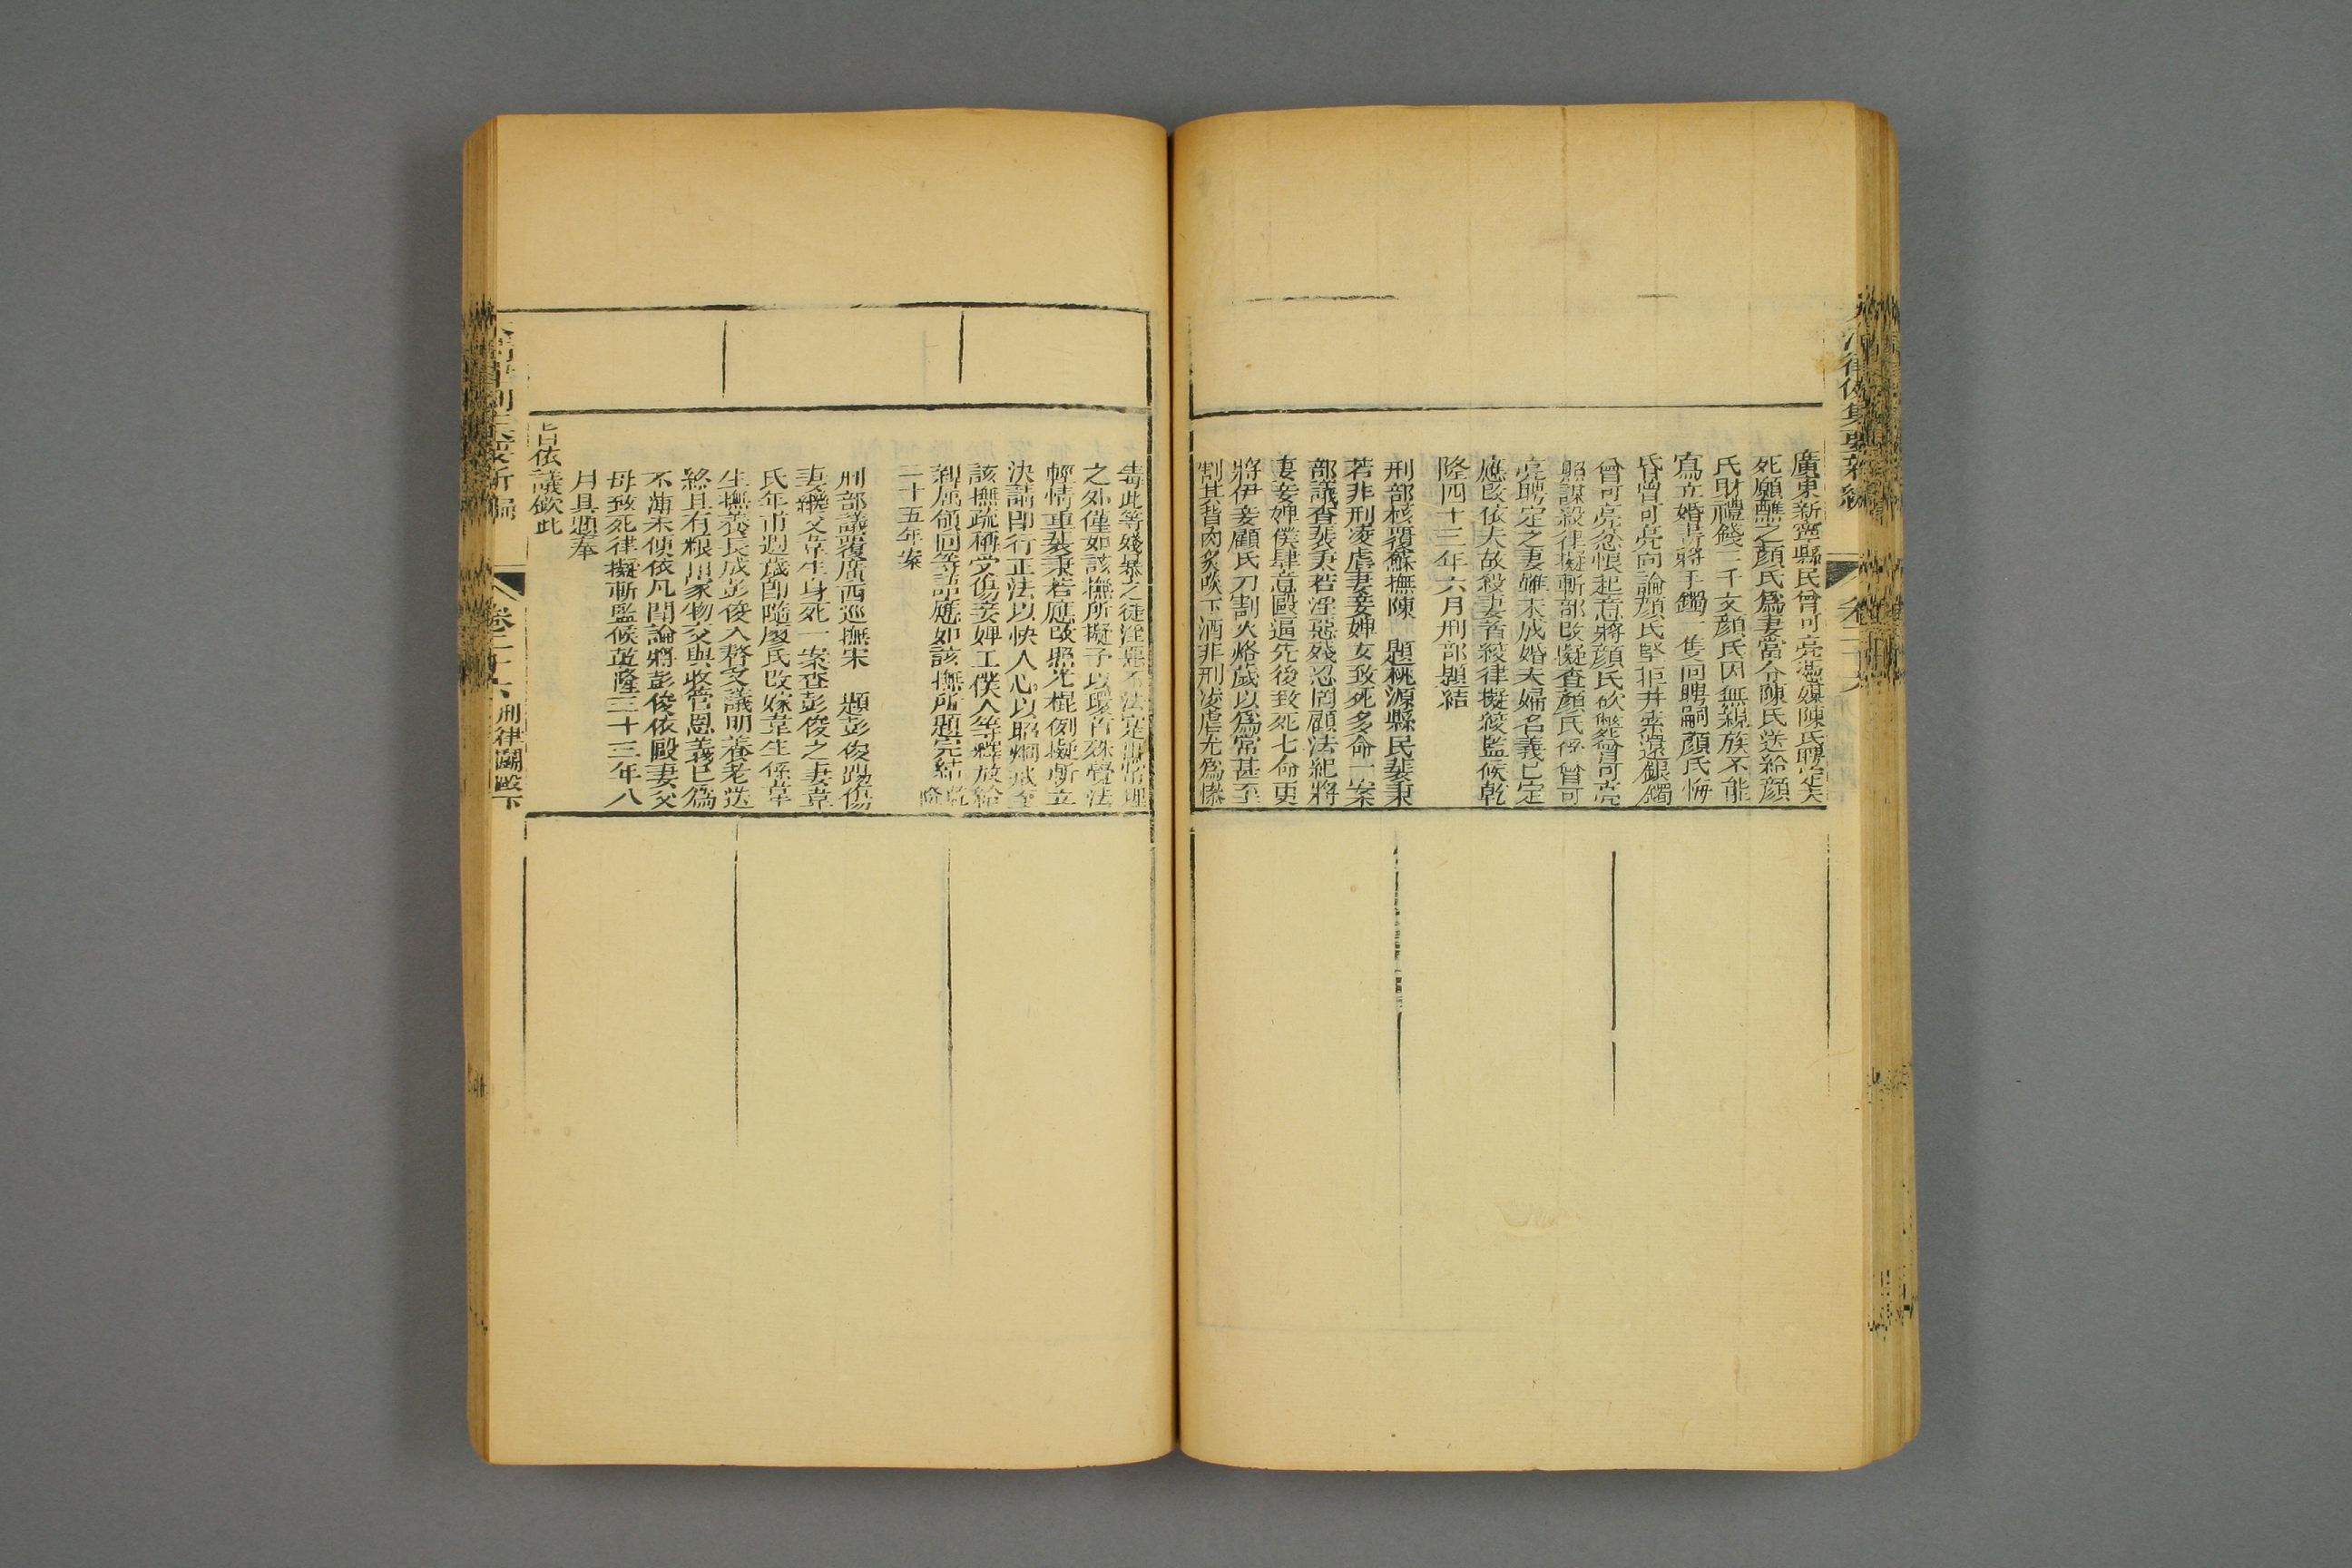 大清律例集要新編
卷二十六
廣東新寧縣民曾可亮憑媒陳氏聘定夫
死願醮之顏氏爲妻當令陳氏送給顏
氏財禮錢二千文顏氏因無親族不能
寫立婚書將手鐲一隻回聘嗣顏氏悔
昏曾可亮向論顏氏堅拒并索還銀鐲
曾可亮忿恨起意將顏氏砍斃將曾可亮
照謀殺律擬斬部改擬查顏氏係曾可
亮聘定之妻雖未成婚夫婦名義已定
應改依夫故殺妻者絞律擬絞監候乾
隆四十三年六月刑部題結
刑部核覆蘇撫陳 題桃源縣民裴秉
若非刑凌虐妻妾婢女致死多命一案
部議查裴秉若淫惡殘忍罔顧法紀將
妻妾婢僕肆意毆逼先後致死七命更
將伊妾顧氏刀割火烙歲以爲常甚至
割其脊肉炙啖下酒非刑凌虐尤爲慘
毒此等殘暴之徒淫惡不法定出常理
之外僅如該撫所擬予以環首殊覺法
輕情重裴秉若應改照光棍例擬斬立
決請即行正法以快人心以昭炯戒至
該撫疏稱受傷妾婢工僕人等釋放給
親屬領回等語應如該撫所題完結乾隆
二十五年案
刑部議覆廣西巡撫宋 題彭俊踢傷
妻繼父韋生身死一案查彭俊之妻韋
氏年甫週歲即隨廖氏改嫁韋生係韋
生撫養長成彭俊入贅受議明養老送
終且有粮田家物交與收管恩義已爲
不薄未便依凡鬪論將彭俊依毆妻父
母致死律擬斬監候乾隆三十三年八
月具題奉
旨依議欽此
大清律例集要新編
卷二十六 刑律鬪毆下